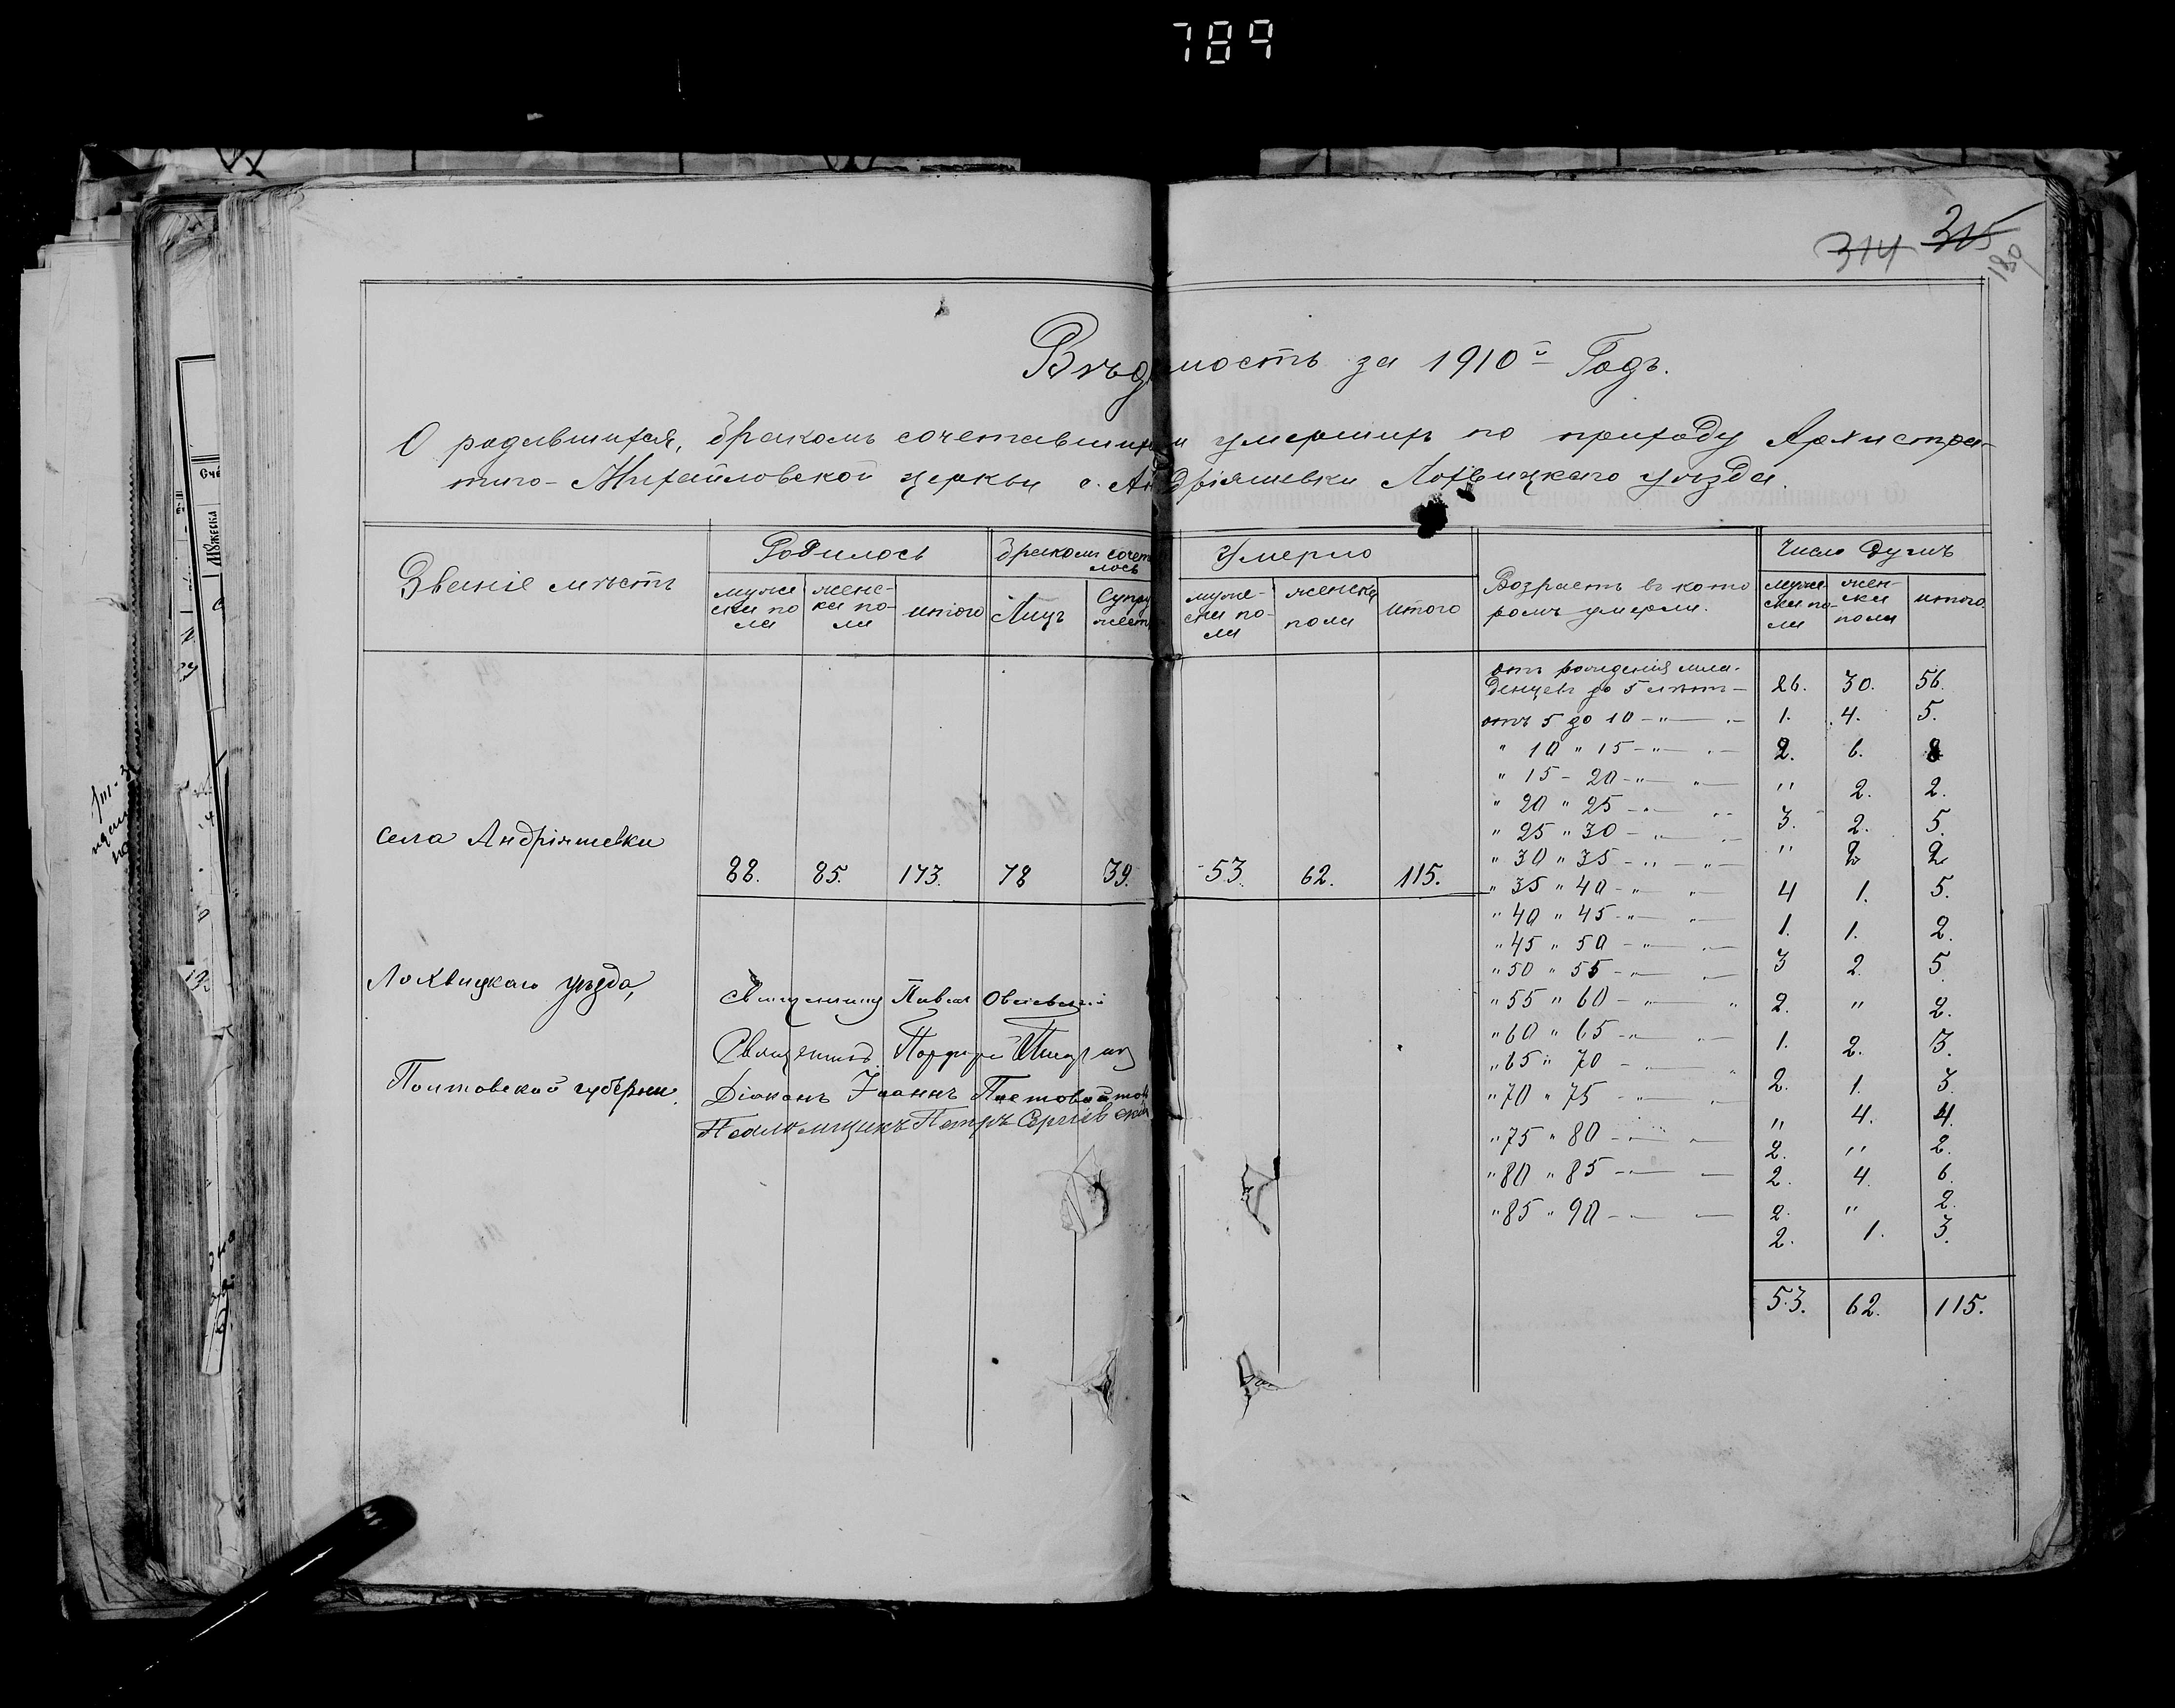 789
314 315
180
Вѣдомость за 1910й Годъ.
О родившихся, бракомъ сочетавшихся и умершихъ по приходу Архистра-
тиго-Михайловской церкви с. Андріяшевки Лохвицкаго уѣзда.
Званіе мѣстъ
Родилось
мужес
ски по
ла
женс-
ки по-
ла
итого
бракомъ сочета
лось
Лицъ
Супру
жест
Умерло
муже-
ски по-
ла
женска
пола
итого
Возрастъ въ кото
ромъ умерли.
Число душъ
муже
ски по-
ла
жен-
ски
пола
итого
Села Андріяшевки
88. 85. 173. 78 39. 53. 62. 115.
Лохвицкаго уѣзда,
Полтавской губерніи.
Священникъ Павелъ
Священникъ Порфирій
Діаконъ Іоаннъ
Псаломщикъ Петръ Сергіевскій
отъ рожденія мла-
денцевъ до 5 лѣтъ — 26. 30. 56.
отъ 5 до 10 — " — 1. 4. 5.
" 10 " 15 — " — 2. 6. 8
" 15 - 20 — " — " 2. 2.
" 20 " 25 — " — 3. 2. 5.
" 25 " 30 — " — " 2 2
" 30 " 35 — " — 4 1. 5.
" 35 " 40 — " — 1. 1. 2.
" 40 " 45 — " — 3 2. 5
" 45 " 50 — " — 2. " 2.
" 50 " 55 — " — 1. 2. 3.
" 55 " 60 — " — 2. 1. 3.
" 60 " 65 — " — " 4. 4.
" 65 " 70 — " — 2. " 2.
" 70 " 75 — " — 2. 4. 6.
" 75 " 80 — " — 2. " 2.
" 80 " 85 — " — 2. 1. 3.
" 85 " 90 — " —
53. 62. 115.